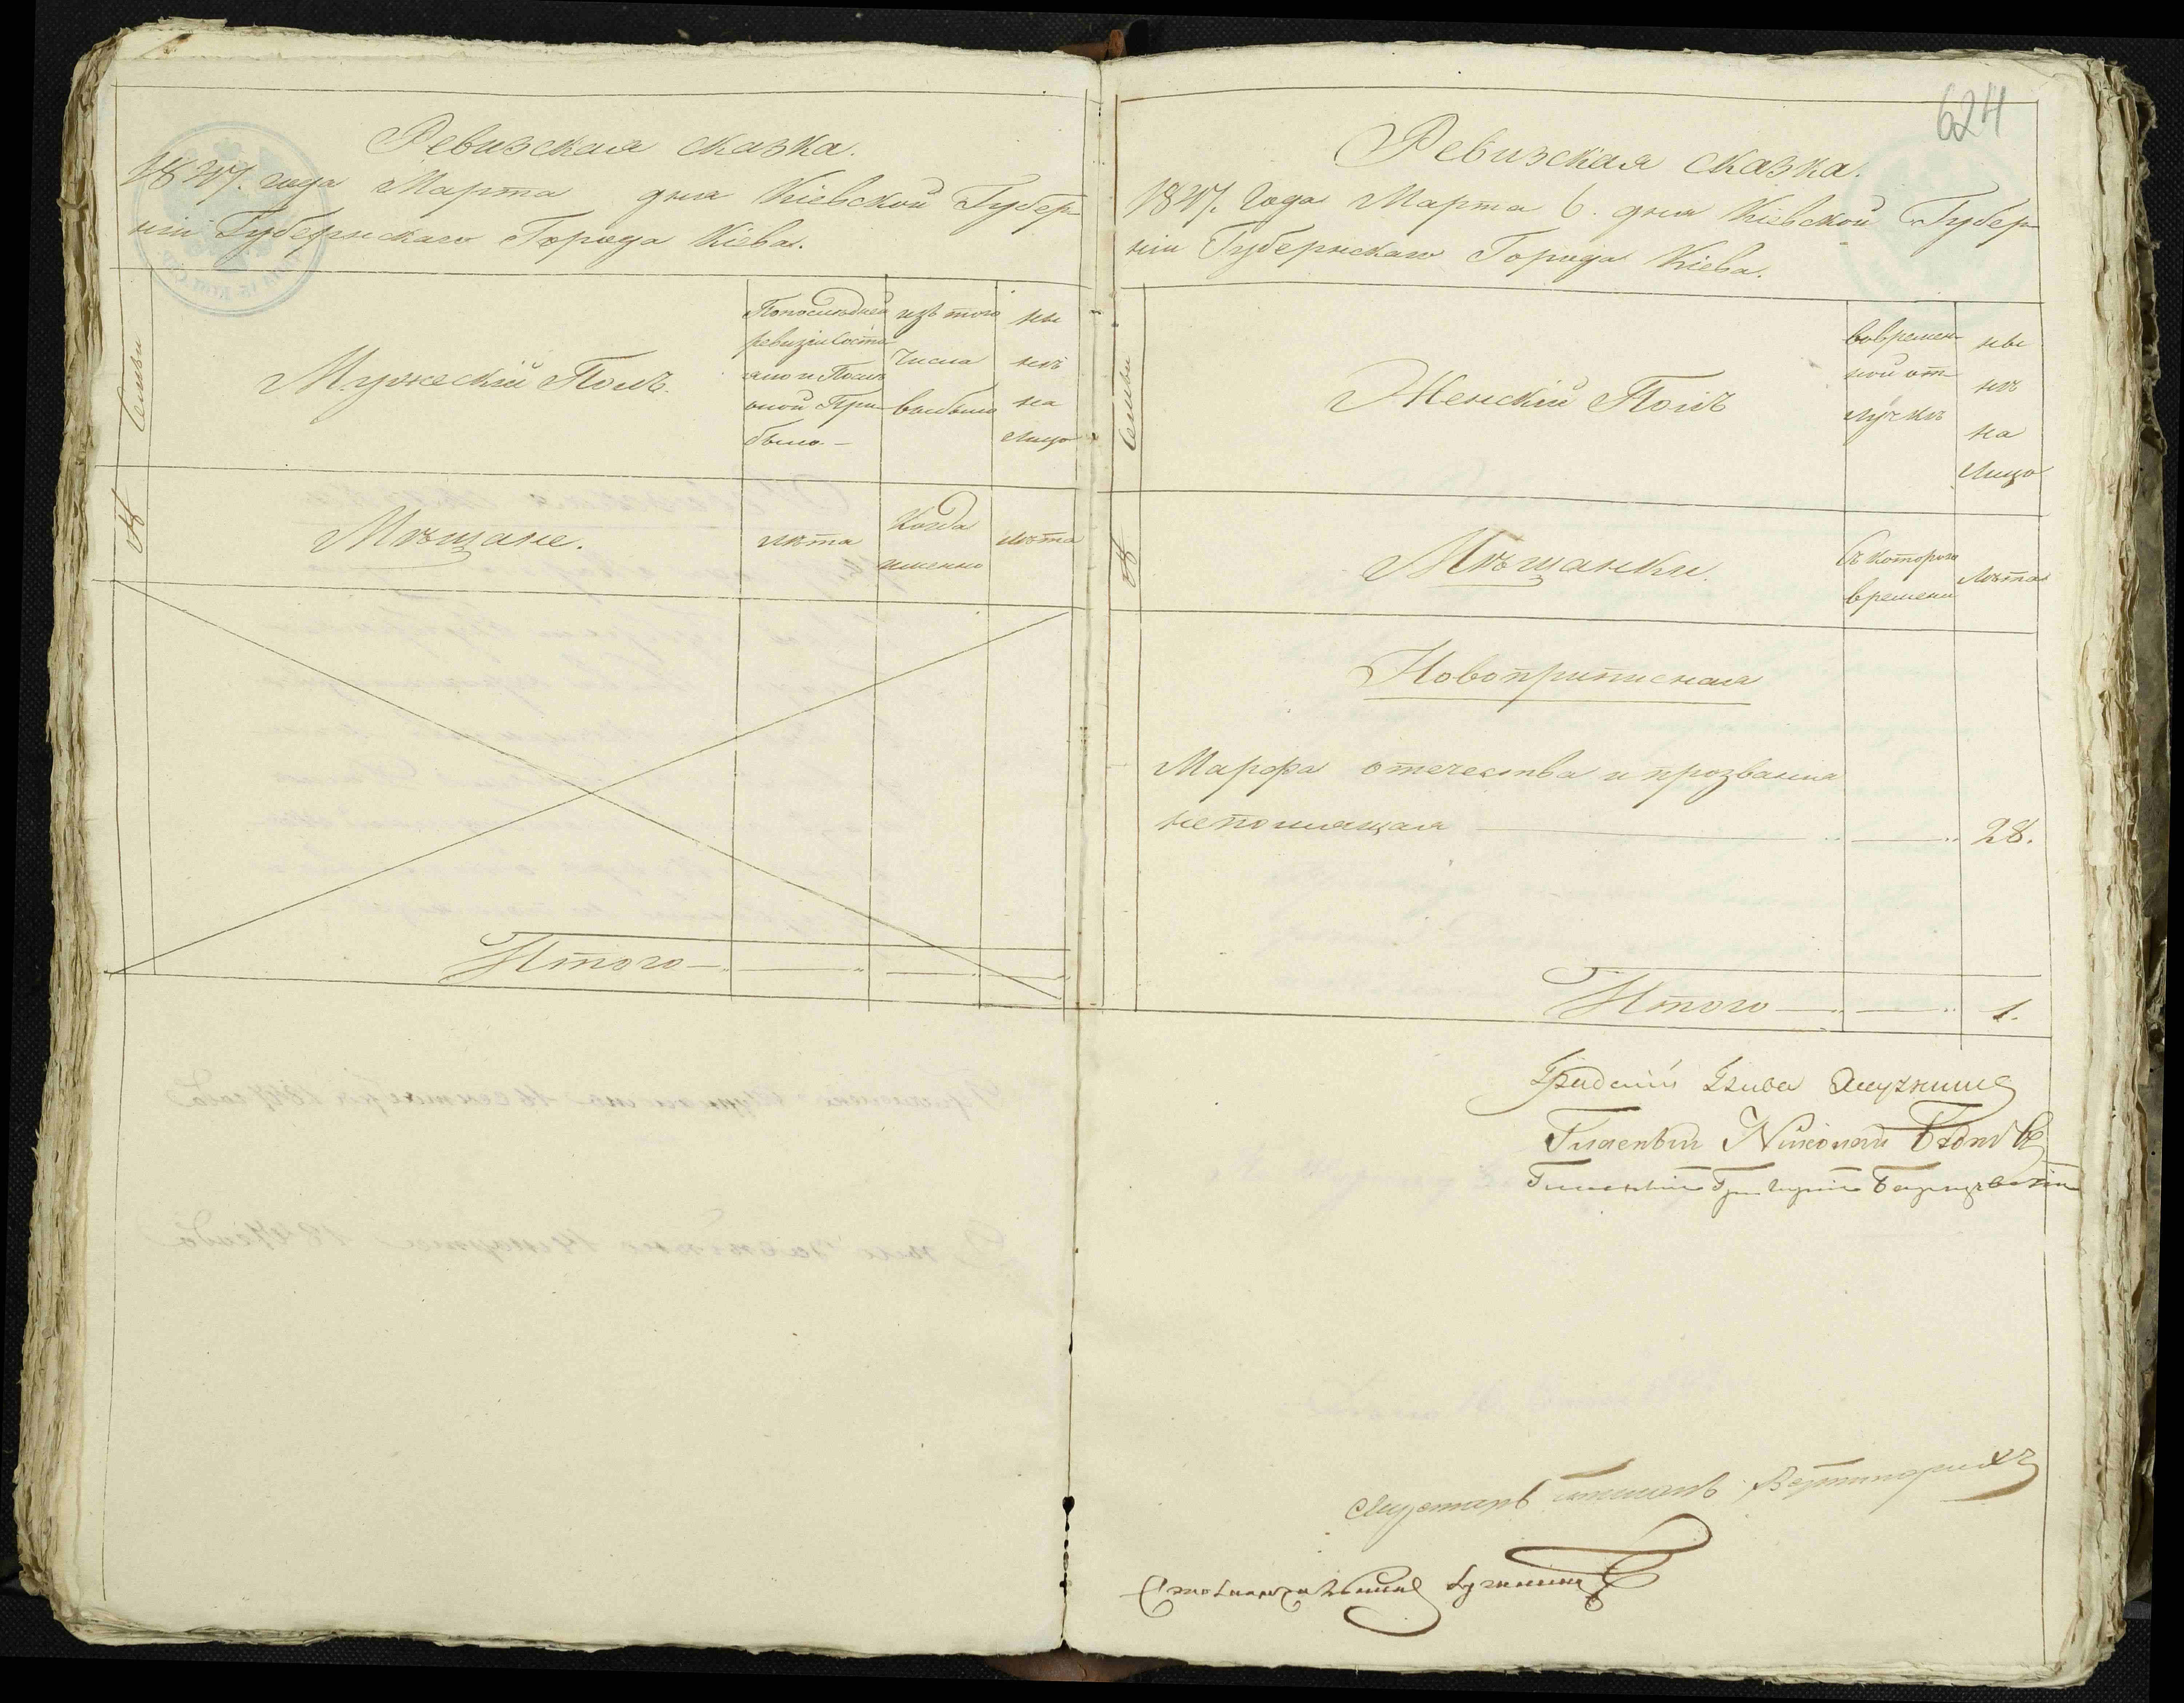 Ревизская сказка.
1847. года Марта дня Кіевской Губер-
ніи Губернскаго Города Кіева.
Семьи
Мужескій Полъ.
По последней
ревизіи состо
яло и После
оной При-
было. —
изъ того
числа
выбыло
ны
нѣ
на
лицо
№
Мѣщане.
лѣта
Когда
именно
лѣта
Итого
624
Ревизская сказка.
1847. Года Марта 6. дня Кіевской Губер-
ніи Губернскаго Города Кіева.
Семьи
Женскій Полъ
вовремен-
ной от
лучкѣ
ны
нѣ
на
лицо
№
Мѣщанки.
Съ котораго
времени
Лѣта
Новоприписная
Марфа отечества и прозванія
непомнящая 28.
Итого 1.
Градскій Глава
Гласный Николай
Гласный Григорій